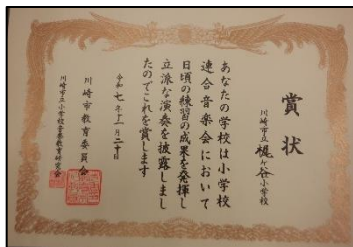 賞状
川崎市立梶ヶ谷小学校
あなたの学校は小学校
連合音楽会において
日頃の練習の成果を発揮し
立派な演奏を披露しまし
たのでこれを賞します
令和七年十一月二十日
川崎市教育委員会
川崎市立小学校音楽教育研究会